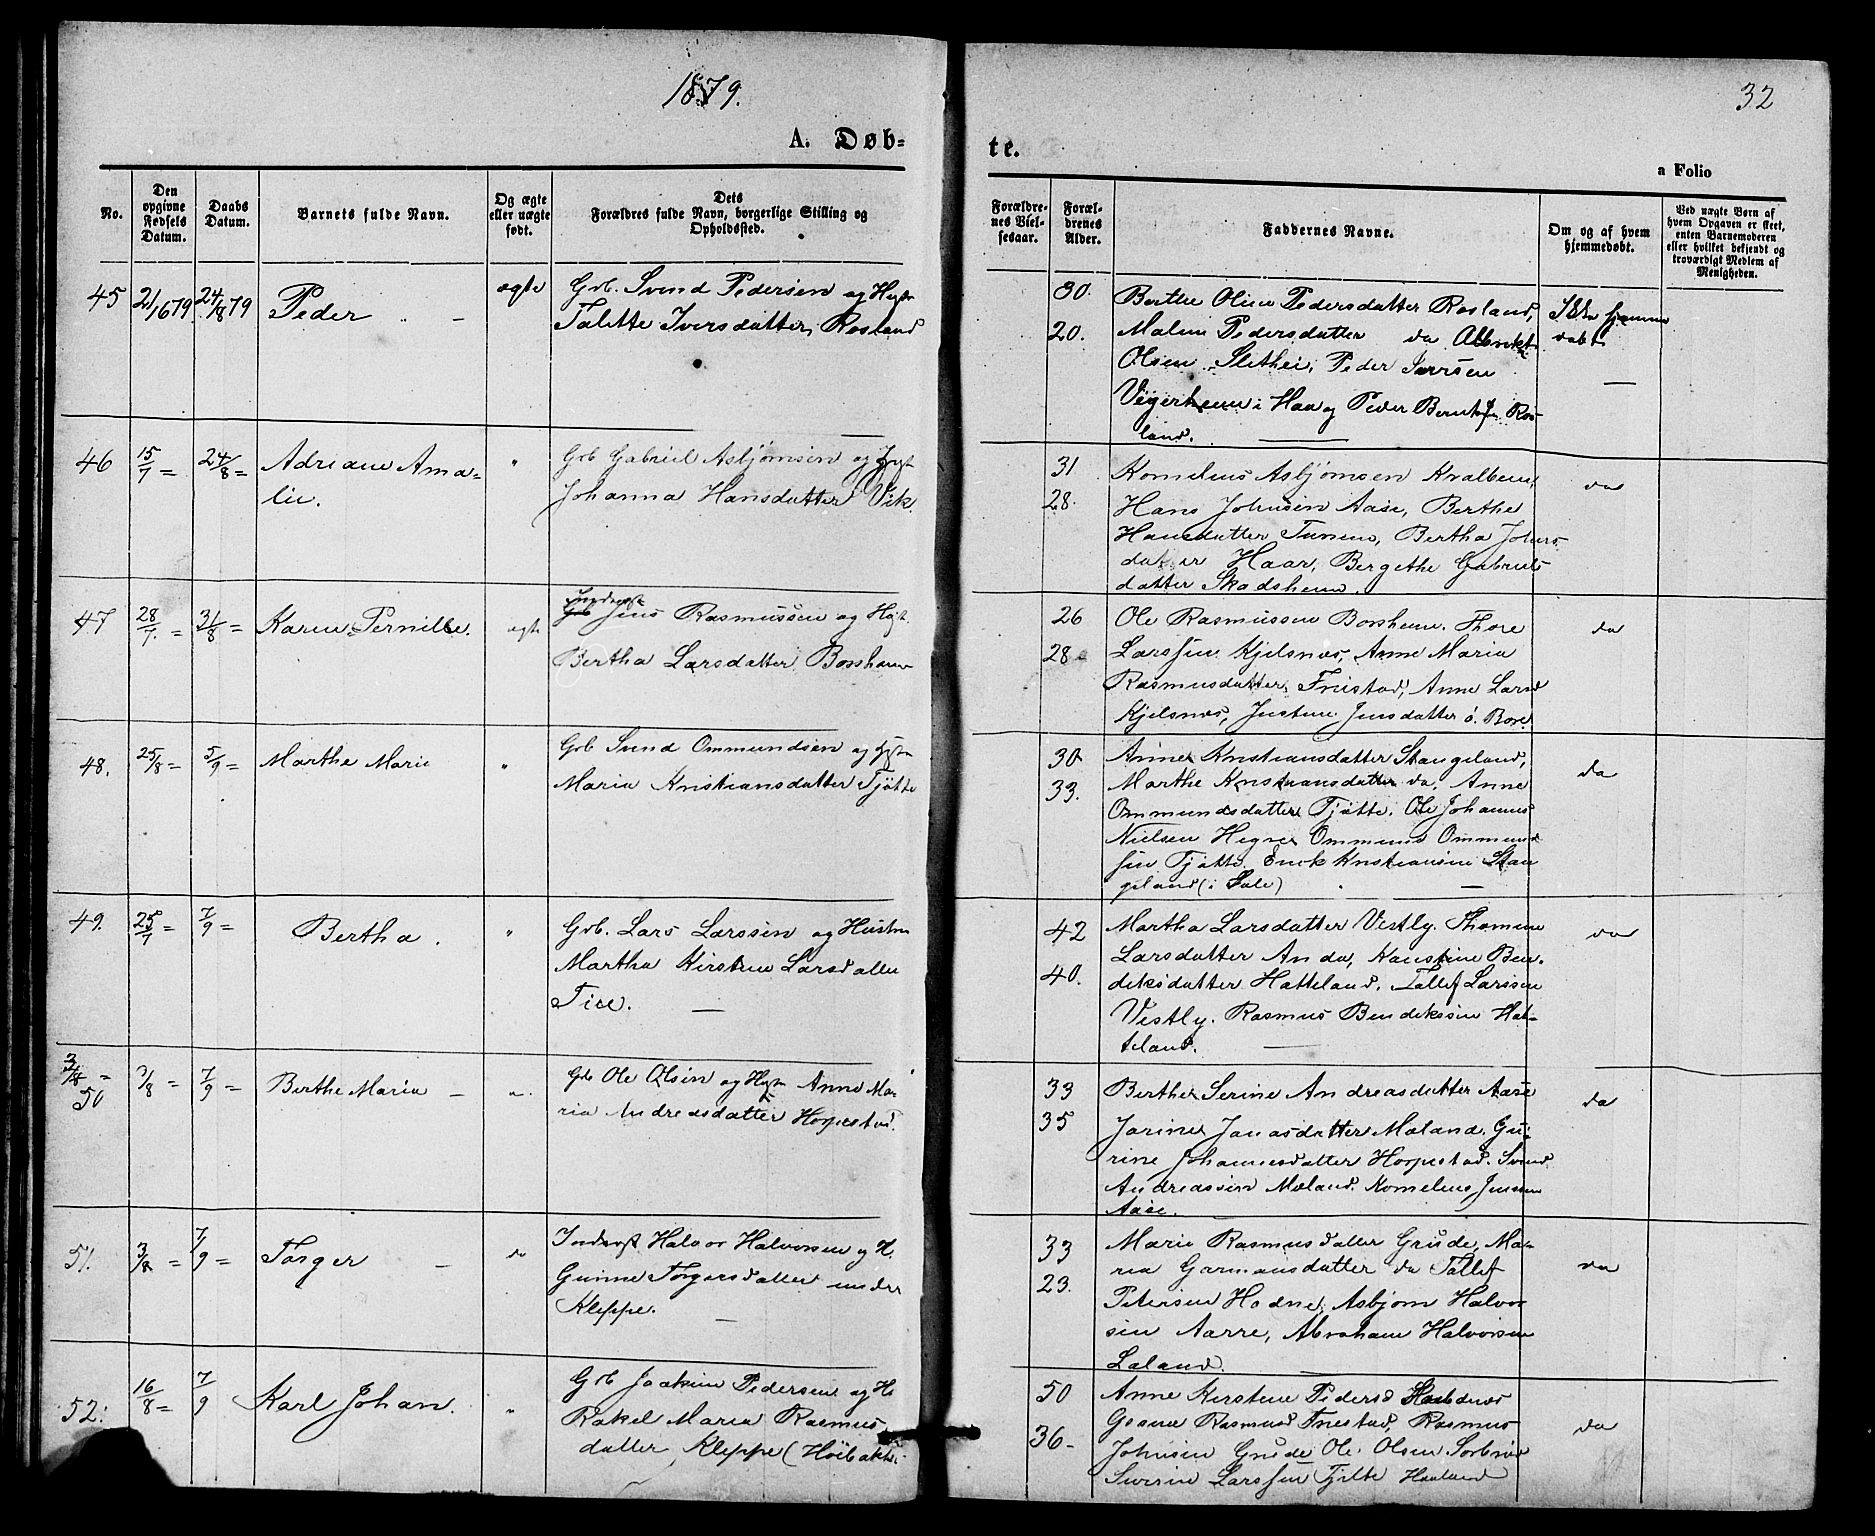 1879.
32
A. Døb-
te.
a Folio
No.
Den opgivne Fødsels Datum.
Daabs Datum.
Barnets fulde Navn.
Og ægte eller uægte født.
Dets Forældres fulde Navn, borgerlige Stilling og Opholdssted.
Forældrenes Vielsesaar.
Forældrenes Alder.
Faddernes Navne.
Om og af hvem hjemmedøbt.
Ved uægte Børn af hvem Opgaven er skeet, enten Barnemoderen eller hvilket bekjendt og troværdigt Medlem af Menigheden.
45 21/6 79 24/8 79 Peder ægte Grb. Svend Pedersen og Hustr
Talette Iversdatter, Rosland
30.
20.
Berthe Oline Pedersdatter Rosland,
Malene Pedersdatter do
Olsen Slethei, Peder Iversen
i Haa og Peder
land.
Ikke hjemme
døbt
46 15/7 = 24/8 = Adriane Ama-
lie. " Grb Gabriel Asbjørnsen og Hust
Johanna Hansdatter Vik.
31
28.
Kornelius Asbjørnsen Kvalbein,
Hans Johnsen Aase, Berthe
Hansdatter Tunem, Bertha Johns
datter Haar, Bergethe Gabriels
datter Skadsheim.
do
47 28/7 = 31/8 = Karen Pernille. ægte Inderst
Grb Jens Rasmussen og Hust.
Bertha Larsdatter Bosshaue
26
28.
Ole Rasmussen Bossheim. Thore
Larssen Kjelsnes, Anne Maria
Rasmusdatter Friestad, Anne Larsd
Kjelsnes, Justine Jensdatter ö. Bore
do
48. 25/8 = 5/9 = Marthe Marie " Grb Svend Ommundsen og Hustr
Maria Kristiansdatter Tjøtte
30
33.
Anne Kristiansdatter Stangeland,
Marthe Kristiansdatter do, Anne
Ommundsdatter Tjøtte. Ole Johannes
Nielsen Hegre Ommund Ommund
sen Tjøtte. Enek Kristiansen Stan
geland (i Sole)
do
49. 25/7 = 7/9 = Bertha. " Grb. Lars Larssen og Hustru
Martha Kirstine Larsdatter
Tice.
42
40.
Martha Larsdatter Vestly. Thomine
Larsdatter Anda, Karstine Ben-
deksdatter Hatteland. Tallef Larssen
Vestly. Rasmus Bendekssen Hat-
teland.
do
3/8 =
50 3/8 = 7/9 = Berthe Maria " Grb Ole Olsen og Hustr Anne Ma-
ria Andreasdatter Horpestad.
33
35
Berthe Serine Andreasdatter Aase
Jorine Jonasdatter Mæland. Gu-
rine Johannesdatter Horpestad. Svend
Andreassen Mæland. Kornelius Jenssen
Aase.
do
51. 3/8 = 7/9 = Torger do Inderst Halvor Halvorsen og H.
Gunne Torgersdatter under
Kleppe.
33
23.
Marie Rasmusdatter Grude, Ma-
ria Garmansdatter do Tollef
Petersen Hodne, Asbjørn Halvor
sen Aarre, Abraham Halvorsen
Laland.
do
52. 16/8 = 7/9 Karl Johan. " Grb Joakim Pedersen og H.
Rakel Maria Rasmus
datter, Kleppe (Höibakke)
50
36-
Anne Kirstine Pedersd
Gosine Rasmusd Friestad, Rasmus
Johnsen Grude Ole Olsen
Larssen Tjelte Haaland
do